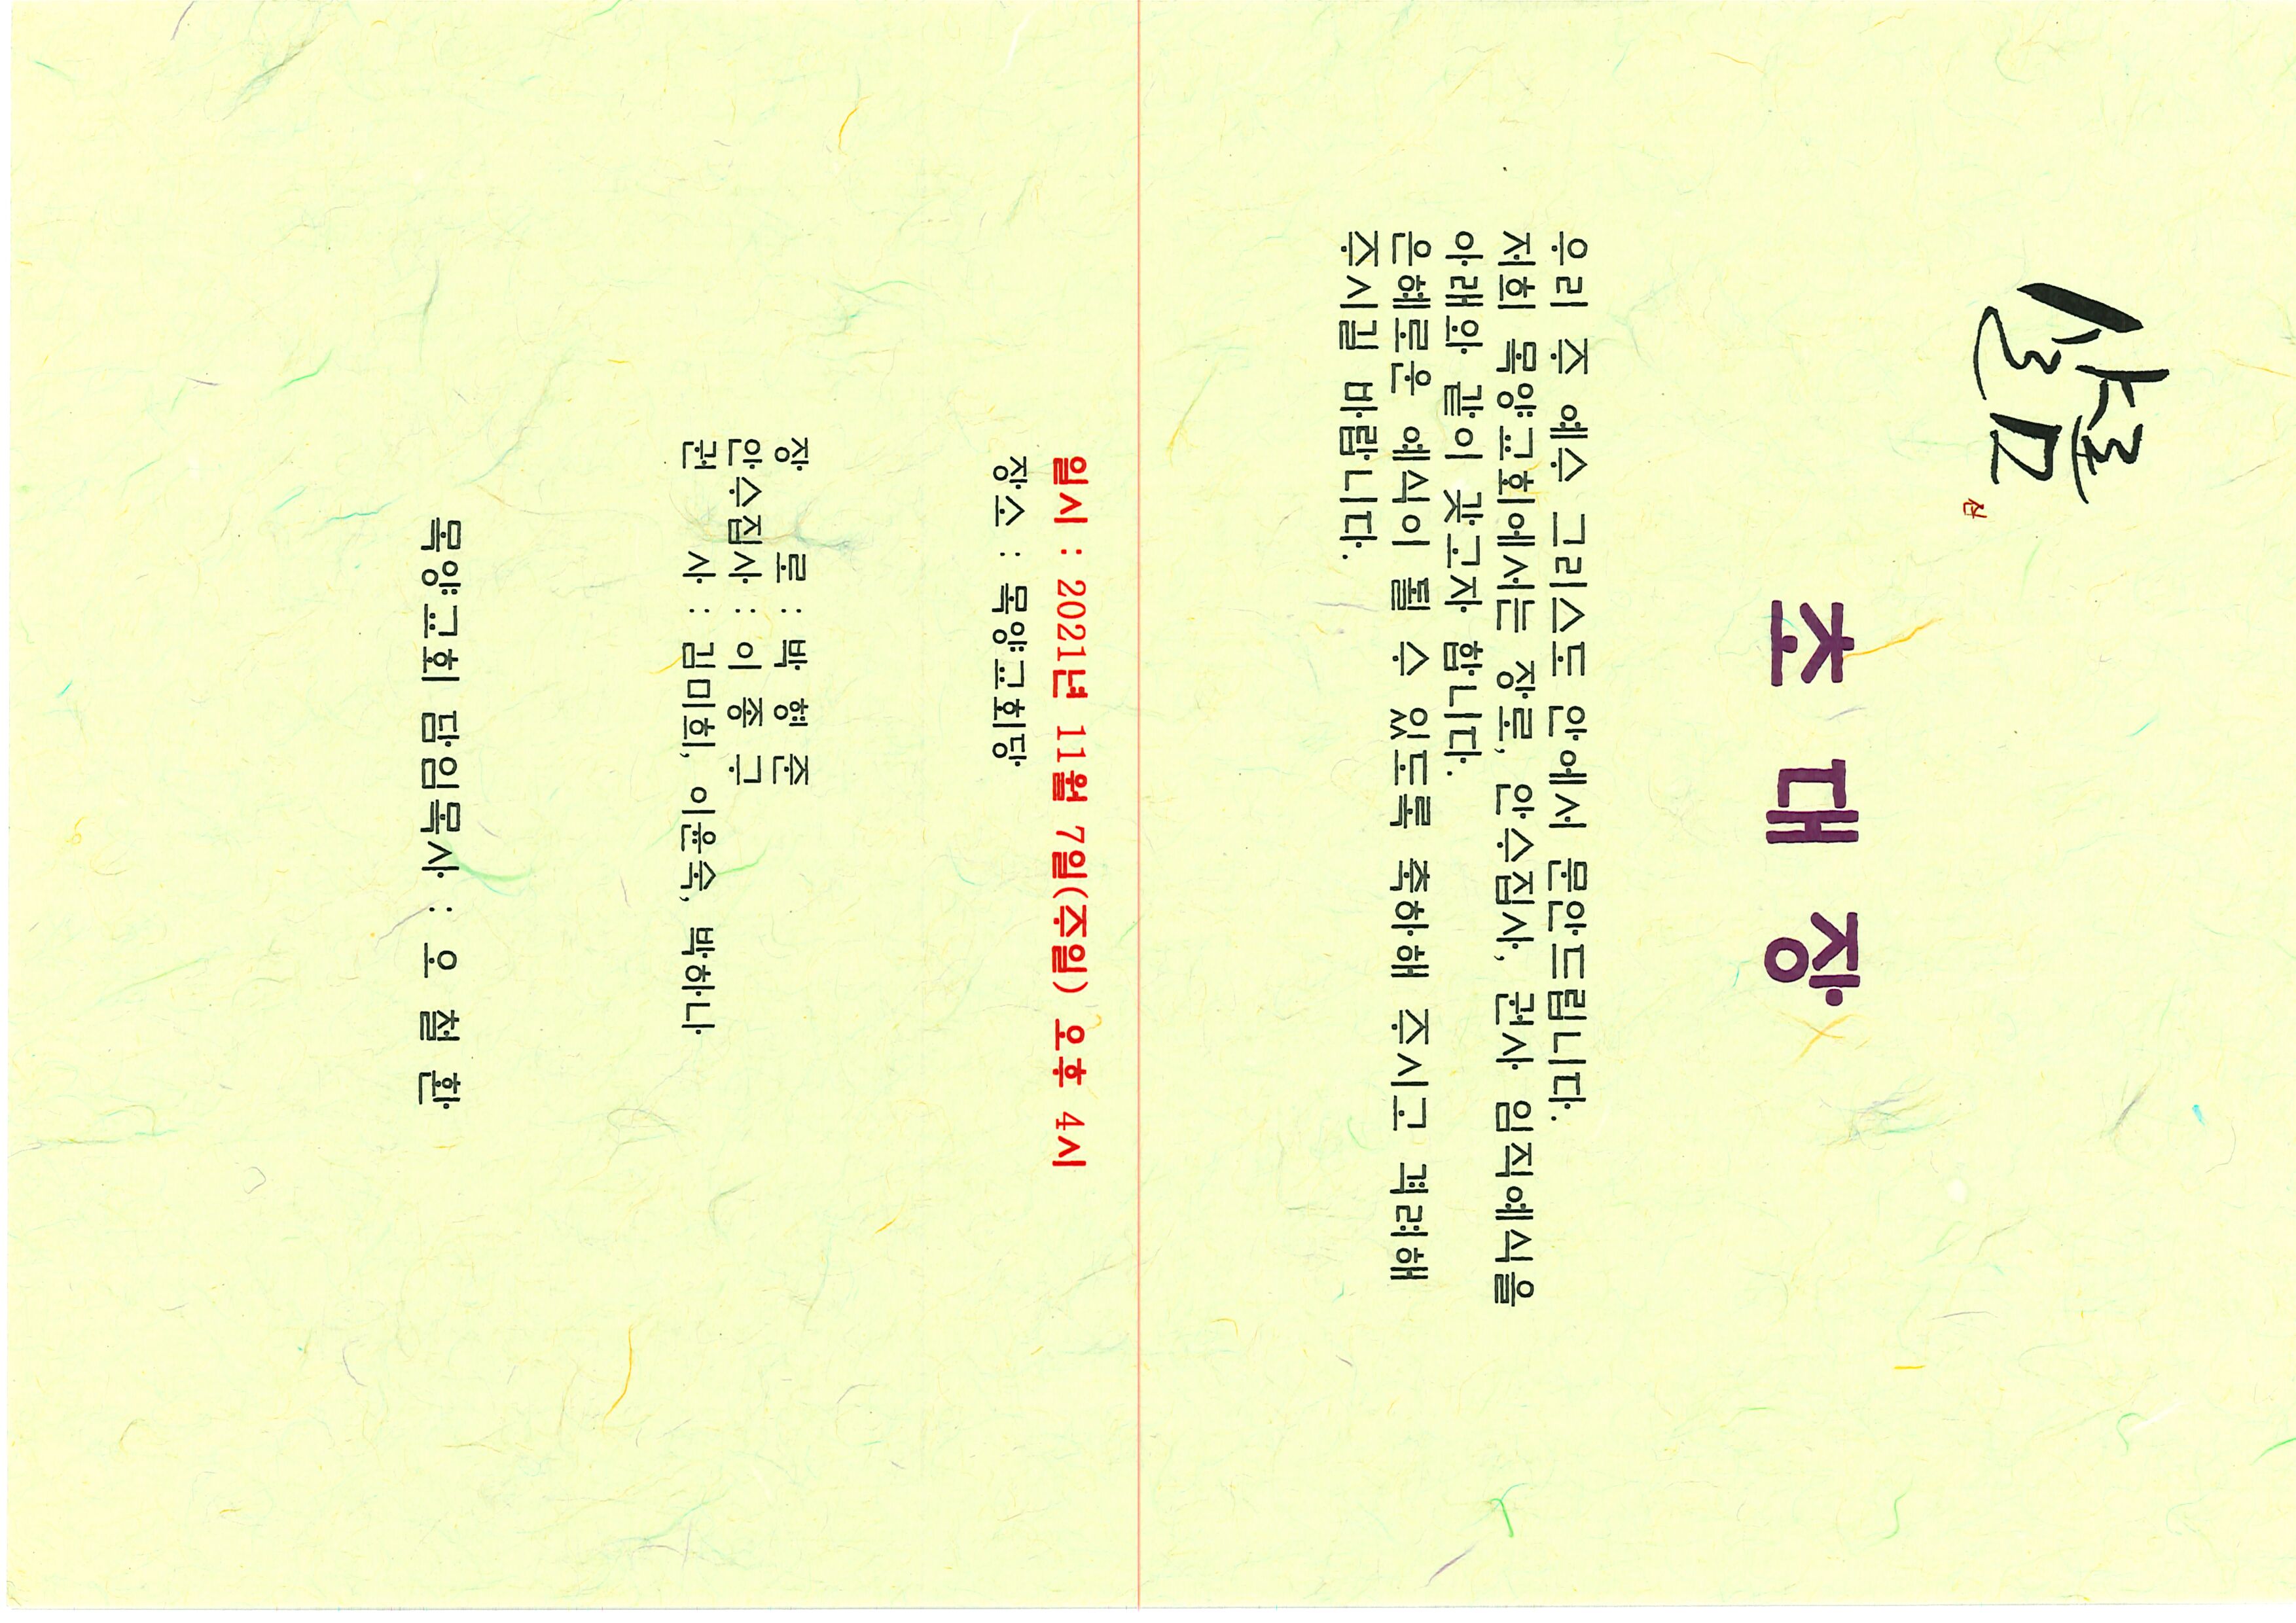 샬롬
초 대 장
우리 주 예수 그리스도 안에서 문안드립니다.
저희 목양교회에서는 장로, 안수집사, 권사 임직예식을
아래와 같이 갖고자 합니다.
은혜로운 예식이 될 수 있도록 축하해 주시고 격려해
주시길 바랍니다.
일시 : 2021년 11월 7일(주일) 오후 4시
장소 : 목양교회당
장 로 : 박 형 준
안수집사 : 이 종 구
권 사 : 김미희, 이윤숙, 박하나
목양교회 담임목사 : 오 철 환